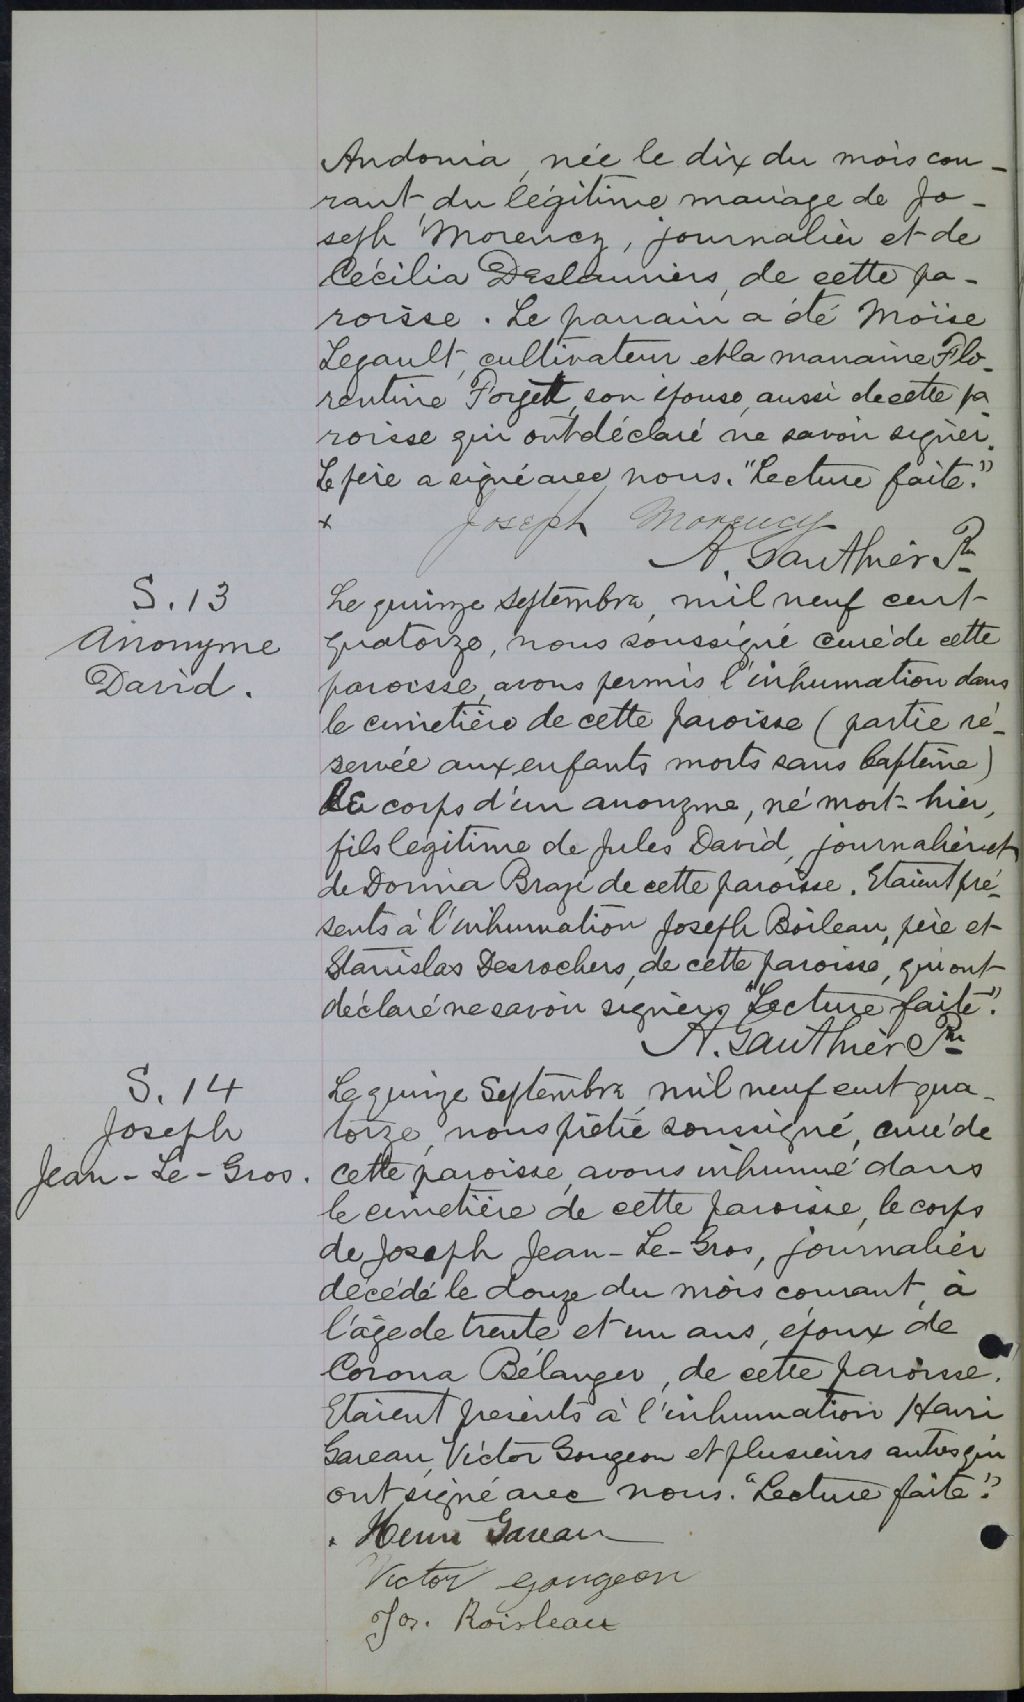 Andonia, née le dix du mois cou-
rant, du légitime mariage de Jo-
seph Morency, journalier et de
Cécilia Deslauriers, de cette pa-
roisse. Le parrain a été Moïse
Legault, cultivateur et la marraine Flo-
rentine Forget, son épouse, aussi de cette pa
roisse qui ont déclaré ne savoir signer.
Le père a signé avec nous. "Lecture faite."
x Joseph Morency
A. Gauthier Ptre
S. 13
Anonyme
David.
Le quinze Septembre, mil neuf cent
quatorze, nous soussigné curé de cette
paroisse, avons permis l'inhumation dans
le cimetière de cette paroisse (partie ré-
servée aux enfants morts sans baptême)
le corps d'un anonyme, né mort hier,
fils legitime de Jules David, journalier et
de Dorina Brazé de cette paroisse. Etaient pré-
sents à l'inhumation Joseph Boileau, père et
Stanislas Desrochers, de cette paroisse, qui ont
déclaré ne savoir signer. "Lecture faite."
A. Gauthier Ptre
S. 14
Joseph
Jean-Le-Gros.
Le quinze Septembre, mil neuf cent qua-
torze, nous prêtre soussigné, curé de
cette paroisse, avons inhumé dans
le cimetière de cette paroisse, le corps
de Joseph Jean-Le-Gros, journalier
décédé le douze du mois courant, à
l'âge de trente et un ans, époux de
Corona Bélanger, de cette paroisse.
Etaient présents à l'inhumation Henri
Gareau, Victor Gougeon et plusieurs autres qui
ont signé avec nous. "Lecture faite."
. Henri Gareau
Victor Gougeon
Jos. Boisleau